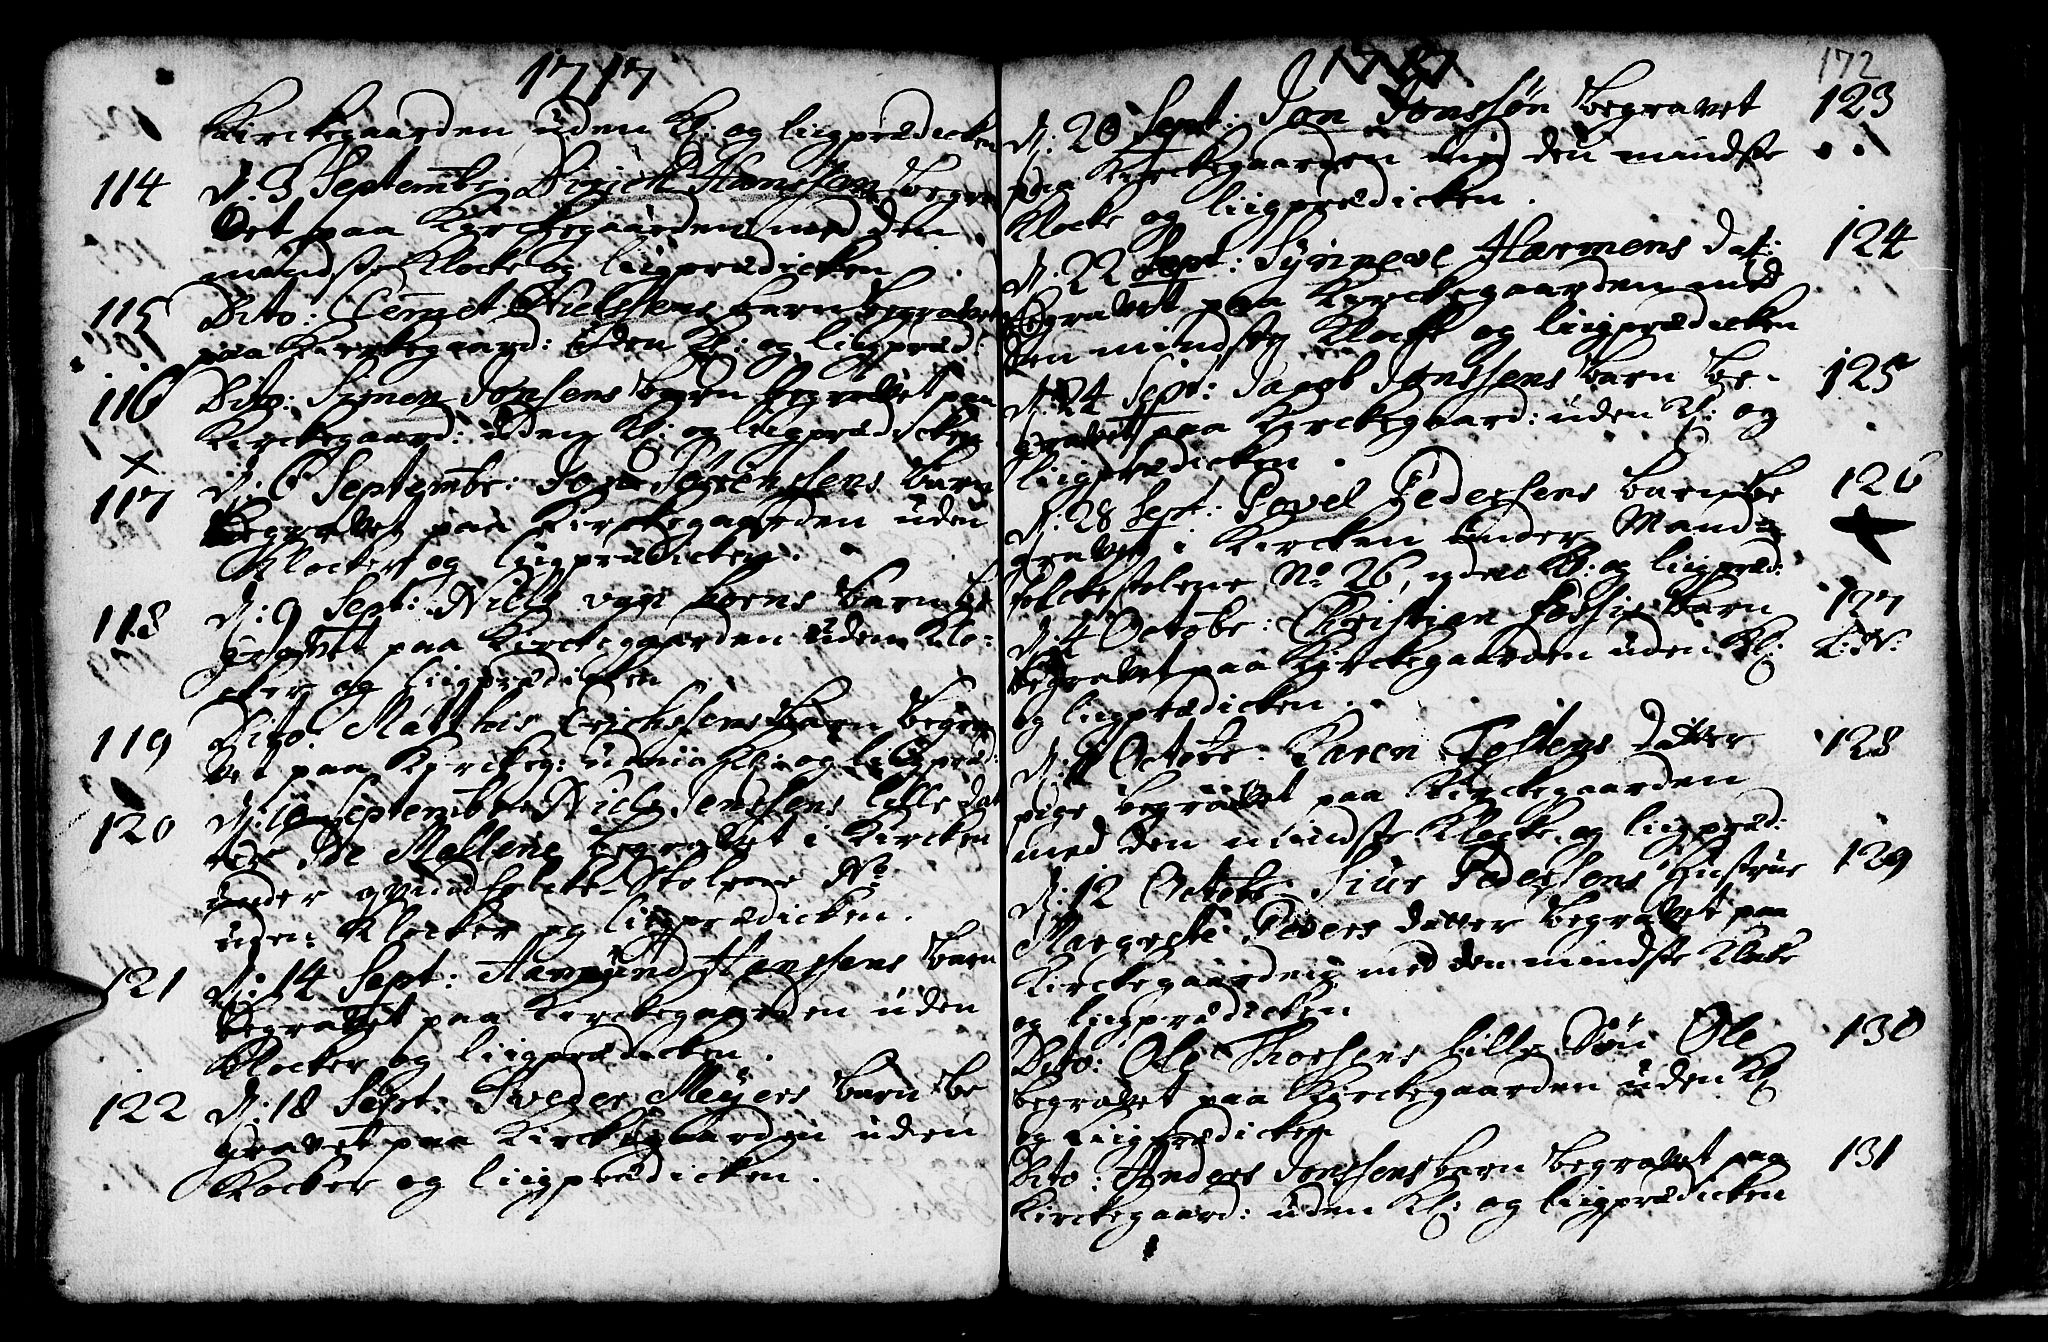 1717
Kirckegaarden uden Kl: og liigprædicken
114 d. 3 Septembr: Dirich Hansson begra
vet paa Kirckegaarden med den
mindste Klocke og liigprædicken
115 Dito: Nielssens barn begravet
paa Kirckegaard: uden Kl: og liigpræd:
116 Dito: Simen Jonsens barn begravet paa
Kirckegaard: uden Kl: og liigprædicken
117 d. 6 Septembr: Sørenssens barn
begravet paa Kirckegaarden uden
Klocker og liigprædicken.
118 d: 9 Sept: Nills von barn be
gravet paa Kirckegaarden uden Klo-
cker og liigprædicken
119 Dito: Matthis Erichssens barn begra
vet paa Kirckeg: uden Kl: og liigpræd:
120 d: 10 Septembr Niels Jenssens lille dat
ter begravet i Kircken
under qvindfolcke Stolene No
uden Klocker og liigprædicken.
121 d: 14 Sept: Aamund Hanssens barn
begravet paa Kirckegaarden uden
Klocker og liigprædicken.
122 d: 18 Sept: Sveder Meyers barn be
gravet paa Kirckegaarden uden
Klocker og liigprædicken.
1717
172
d: 20 Sept: Jon Jonssøn begravet 123
paa Kirckegaarden med den mindste
Klocke og liigprædicken.
d: 22 Sept: Synneve Harmens dat: 124
begravet paa Kirckegaarden med
den mindste Klocke og liigprædicken
d: 24 Sept: Jacob Jonssens barn be- 125
gravet paa Kirckegaard: uden Kl: og
liigprædicken.
d: 28 Sept: Povel Pedersens barn be 126
gravet i Kircken under Mand
folckestolene No 26, uden Kl: og liigpræd:
d: 4 Octobr: Christian barn 127
begravet paa Kirckegaarden uden Kl:
og liigprædicken.
d: Octobr. Karen Tostens datter 128
pige begravet paa Kirckegaarden
med den mindste Klocke og liigpræd:
d: 12 Octobr: Siur Pedersens hustrue 129
Margrete Peders datter begravet paa
Kirckegaarden med den mindste Klocke
og liigprædicken
Dito: Ole Thorsens lille Søn Ole 130
begravet paa Kirckegaarden uden Kl
og liigprædicken
Dito: Anders Jonssens barn begravet paa 131
Kirckegaard: uden Kl: og liigprædicken